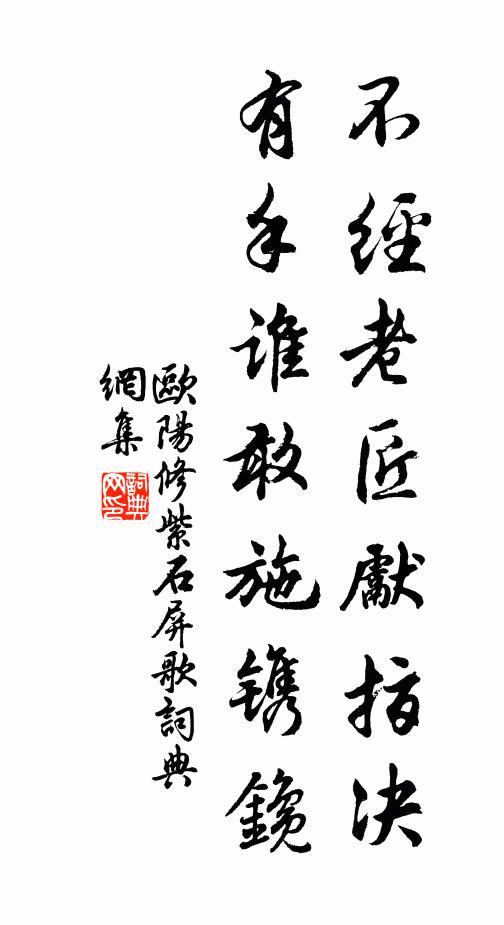 不經老匠獻指決
有手誰敢施鐫鑱
歐陽修紫石屏歌詞典
網集
詞典網印